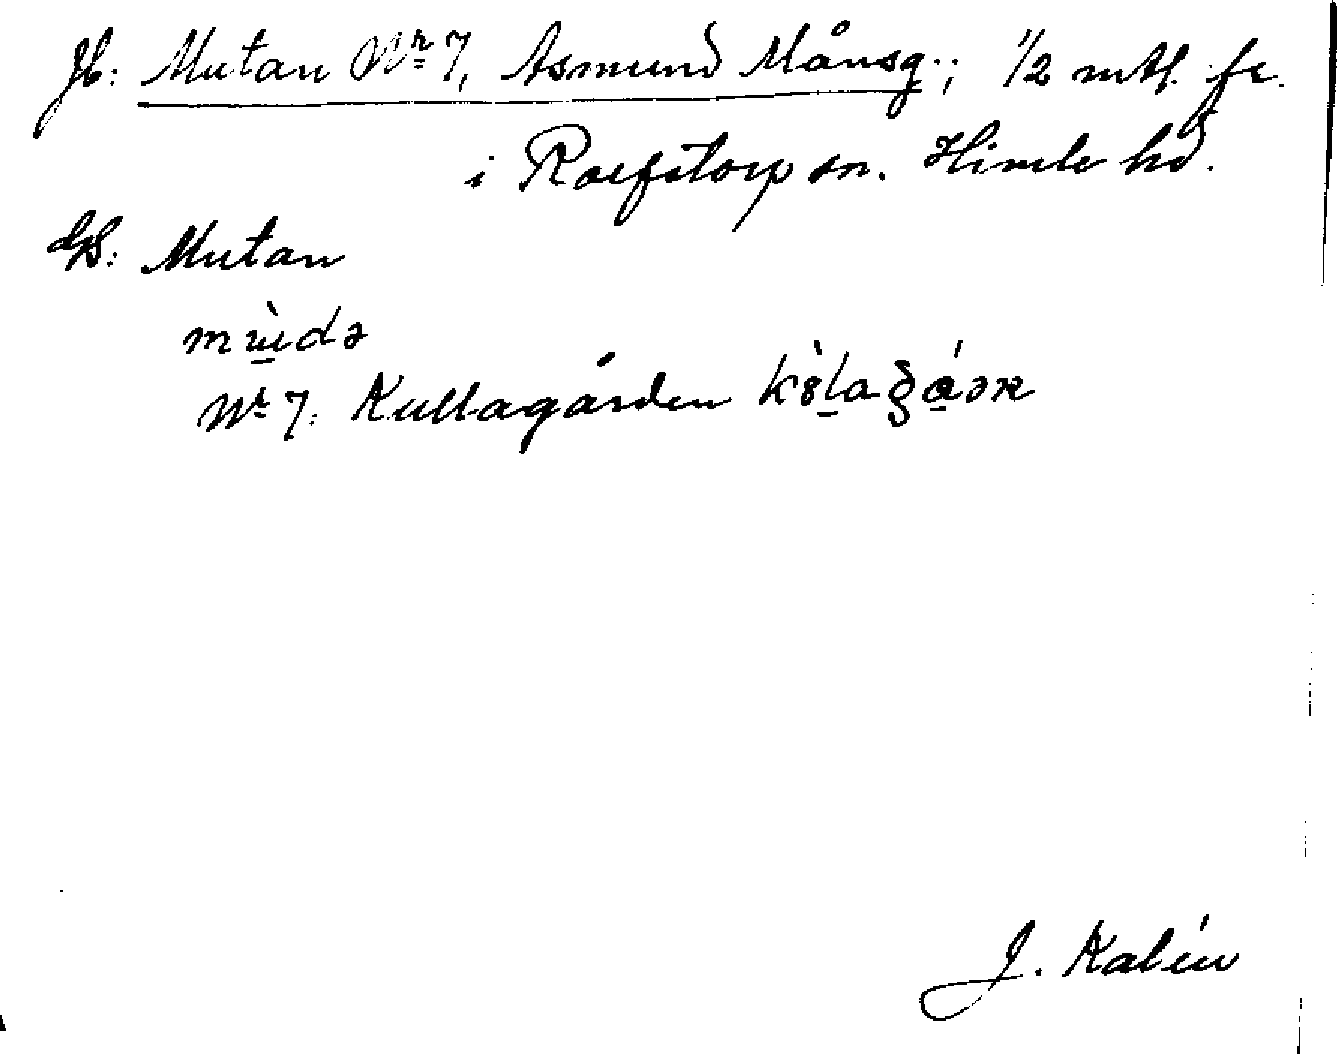 Jb: Mutan Nr 7, Asmund Månsg.; 1/2 mtl. fr.
i Roefstorp sn. Himle hd.
Gd: Mutan
mùdə
Nr 7: Kullagården
J. Kalén